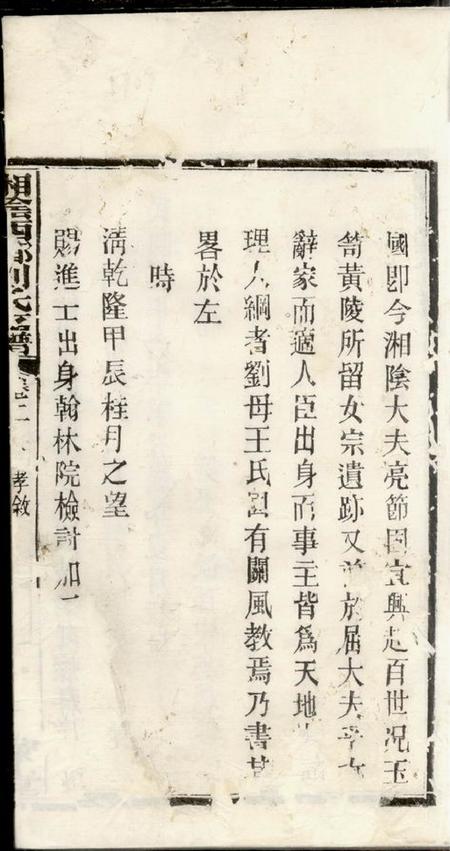 國即今湘陰大夫亮節固宜興起百世況玉
笥黃陵所留女宗遺跡又並於屈大夫乎女
辭家而適人臣出身而事主皆為天地
理人綱者劉母王氏固有關風教焉乃書其
畧於左
時
清乾隆甲辰桂月之望
賜進士出身翰林院檢討加一
湘陰西鄉劉氏家譜
孝敘